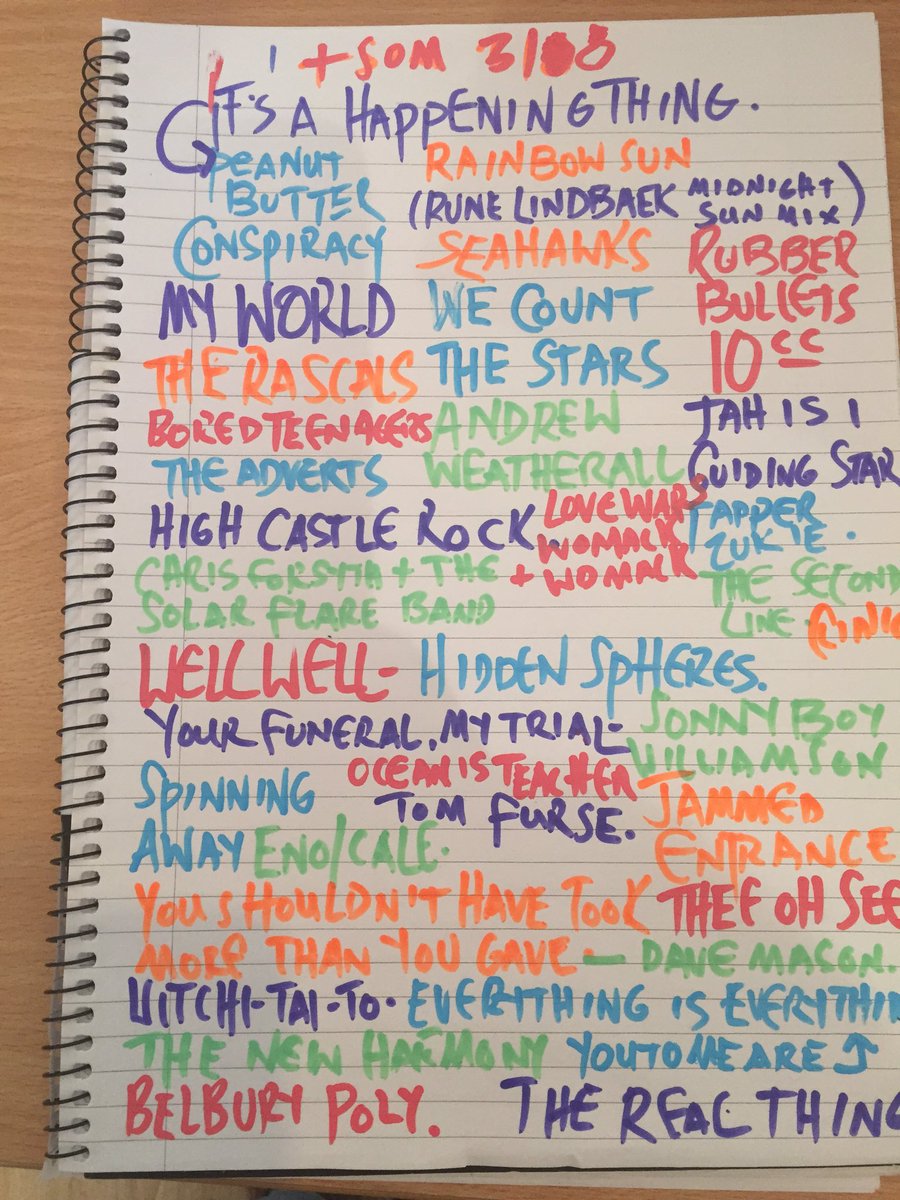 + SOM 3/08
IT'S A HAPPENING THING.
PEANUT
BUTTER
CONSPIRACY
RAINBOW SUN
(RUNE LINDBAEK MIDNIGHT
SUN MIX)
SEAHAWKS
RUBBER
BULLETS
10cc
MY WORLD
THE RASCALS
WE COUNT
THE STARS
ANDREW
WEATHERALL
BORED TEENAGERS
THE ADVERTS
JAH IS I
GUIDING STAR
TAPPER
ZUKIE.
HIGH CASTLE ROCK.
CARIS FORSTIA + THE
SOLAR FLARE BAND
LOVE WARS
WOMACK
+ WOMACK
THE SECOND
LINE.
WELL WELL-
HIDDEN SPHERES.
YOUR FUNERAL, MY TRIAL-
SONNY BOY
WILLIAMSON
SPINNING
AWAY ENO/CALE.
OCEAN IS TEACHER
TOM FURSE.
JAMMED
ENTRANCE
THEE OH SEE
YOU SHOULDN'T HAVE TOOK
MORE THAN YOU GAVE - DAVE MASON.
WITCHI-TAI-TO. EVERYTHING IS EVERYTHIN
THE NEW HARMONY
BELBURY POLY.
YOU TO ME ARE
THE REAL THING